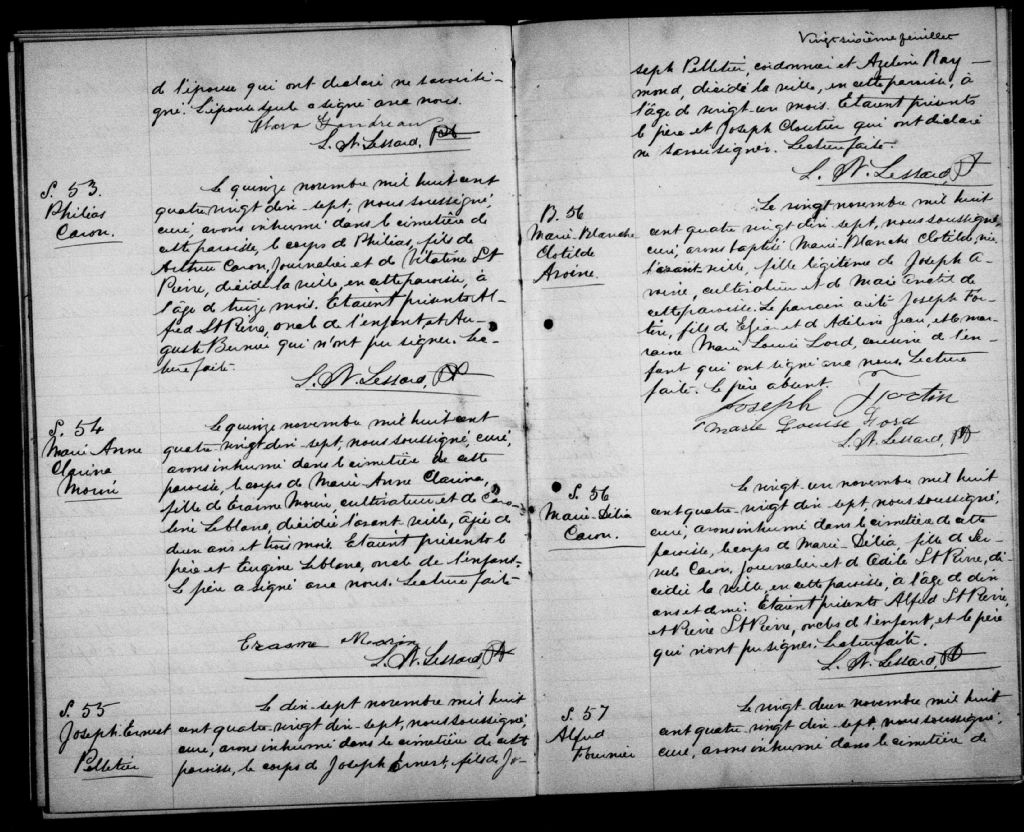 de l'épouse qui ont déclaré ne savoir si-
gné. L'épouse seule a signé avec nous.
Gendreau
L. N. Lessard, Ptr
S. 53.
Philias
Caron.
Le quinze novembre mil huit cent
quatre vingt dix-sept, nous soussigné,
curé, avons inhumé dans le cimetière de
cette paroisse, le corps de Philias, fils de
Arthur Caron, journalier et de Vitaline St
Pierre, décédé la veille, en cette paroisse, à
l'âge de treize mois. Etaient présents Al-
fred St Pierre, oncle de l'enfant, et Au-
guste Bernier qui n'ont pu signer. Lec-
ture faite.
L. N. Lessard, Ptr
S. 54
Marie Anne
Clarina
Morin
Le quinze novembre mil huit cent
quatre vingt dix sept, nous soussigné, curé,
avons inhumé dans le cimetière de cette
paroisse, le corps de Marie-Anne Clarina,
fille de Erasme Morin, cultivateur et de Caro-
line Leblanc, décédée l'avant-veille, âgée de
deux ans et trois mois. Etaient présents le
père et Eugène Leblanc, oncle de l'enfant.
Le père a signé avec nous. Lecture faite
Erasme Morin
L. N. Lessard, Ptr
S. 55
Joseph-Ernest
Pelletier
Le dix-sept novembre mil huit
cent quatre-vingt dix-sept, nous soussigné,
curé, avons inhumé dans le cimetière de cette
paroisse, le corps de Joseph Ernest, fils de Jo-
Vingt sixième feuillet
seph Pelletier, cordonnier et Azeline Ray-
mond, décédé la veille, en cette paroisse, à
l'âge de vingt-un mois. Etaient présents
le père et Joseph Cloutier qui ont déclaré
ne savoir signer. Lecture faite.
L. N. Lessard, Ptr
B. 56
Marie-Blanche
Clotilde
Avoine.
Le vingt novembre mil huit
cent quatre vingt dix-sept, nous soussigné,
curé, avons baptisé Marie Blanche Clotilde, née
l'avant-veille, fille légitime de Joseph A-
voine, cultivateur et de Marie de
cette paroisse. Le parrain a été Joseph For-
tin, fils de Elzéar et d'Adeline Jean, et la mar-
raine Marie Louise Lord, cousine de l'en-
fant qui ont signé avec nous. Lecture
faite. Le père absent.
Joseph Foctin
Marie Louise Lord
L. N. Lessard, Ptr
S. 56
Marie-Délia
Caron.
Le vingt-un novembre mil huit
cent quatre-vingt dix-sept, nous soussigné,
curé, avons inhumé dans le cimetière de cette
paroisse, le corps de Marie-Délia fille de
Caron, journalier et d'Odile St Pierre, dé-
cédée la veille, en cette paroisse, à l'âge de deux
ans et demi. Etaient présents Alfred St Pierre,
et Pierre St Pierre, oncles de l'enfant, et le père
qui n'ont pu signer. Lecture faite.
L. N. Lessard, Ptr
S. 57
Alfred
Fournier
Le vingt deux novembre mil huit
cent quatre vingt dix-sept, nous soussigné,
curé, avons inhumé dans le cimetière de